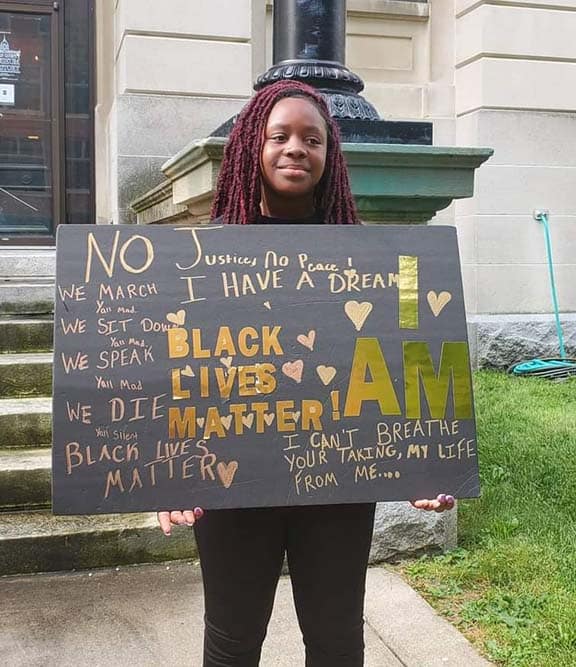 NO JUSTICE, NO PEACE !
I HAVE A DREAM
WE MARCH
Yall Mad
WE SIT DOWN
Yall Mad
WE SPEAK
Yall Mad
WE DIE
Yall Silent
BLACK LIVES
MATTER
BLACK
LIVES
MATTER!
I
AM
I CAN'T BREATHE
YOUR TAKING, MY LIFE
FROM ME....